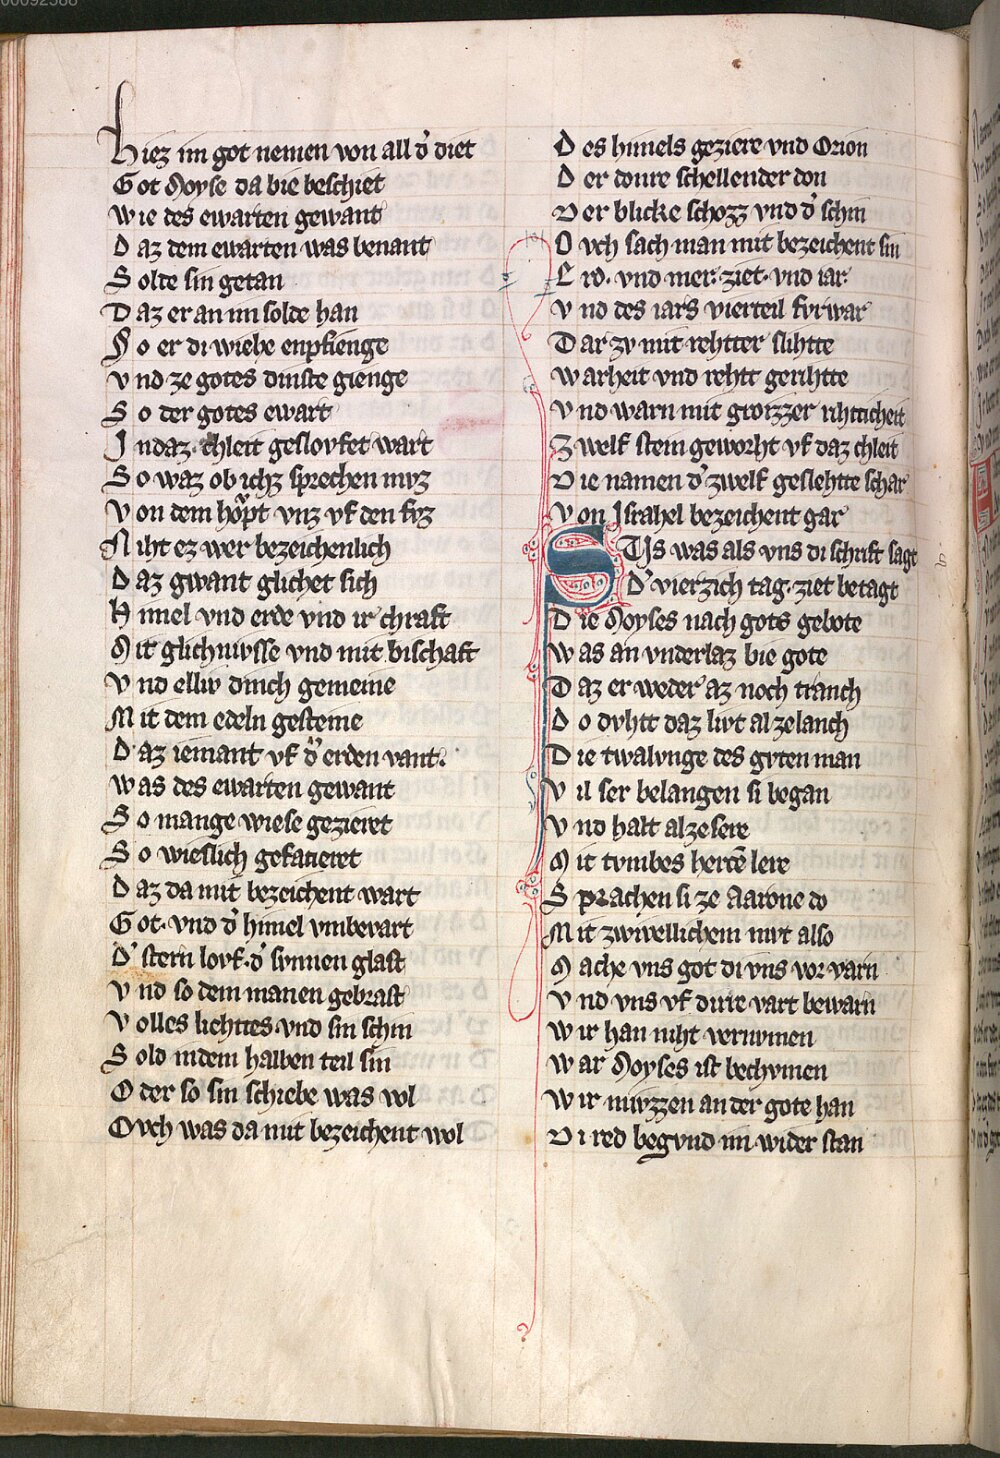 00092588
Hiez im got nemen von all d' diet
Got Moyse da bie beschiet
Wie des ewarten gewant
Daz dem ewarten was benant
Solde sin getan
Daz er an im solde han
So er di wiehe enpfienge
Vnd ze gotes dinste gienge
So der gotes ewart
In daz chleit geslovfet wart
So waz ob ichz sprechen mvz
Von dem hovpt vnz vf den fvz
Niht ez wer bezeichenlich
Daz gwant glichet sich
Himel vnd erde vnd ir chraft
Mit glichnvsse vnd mit bischaft
Vnd elliv dinch gemeine
Mit dem edeln gesteine
Daz iemant vf d' erden vant.
Was des ewarten gewant
So mange wiese gezieret
So wieslich gefatieret
Daz da mit bezeichent wart
Got. vnd d' himel vmbevart
D' stern lovf. d' svnnen glast
Vnd so dem manen gebrast
Volles liehttes vnd sin schin
Sold in dem halben teil sin
Oder so sin schiebe was vol
Ovch was da mit bezeichent wol
Des himels geziere vnd Orion
Der donre schellender don
Der blicke schozz vnd d' schin
Ovch sach man mit bezeichent sin
Erd. vnd mer. ziet. vnd iar
Vnd des iars vierteil fvrwar
Dar zv mit rehtter slihtte
Warheit vnd rehtt gerihtte
Vnd warn mit grozzer rihtticheit
Zwelf stein geworht vf daz chleit
Die namen d' zwelf geslehtte schar
Von Israhel bezeichent gar
SVs was als vns di schrift sagt
D' vierzich tag. ziet betagt
Die Moyses nach gots gebote
Was an vnderlaz bie gote
Daz er weder az noch tranch
Do dvhtt daz livt al ze lanch
Die twalvnge des gvten man
Vil ser belangen si began
Vnd hart alze sere
Mit tvmbes hercē lere
Sprachen si ze Aarone do
Mit zwivellichem mvt also
Mache vns got di vns vor varn
Vnd vns vf dirre vart bewarn
Wir han niht vernvmen
War Moyses ist bechvmen
Wir mvzzen ander gote han
Di red begvnd im wider stan